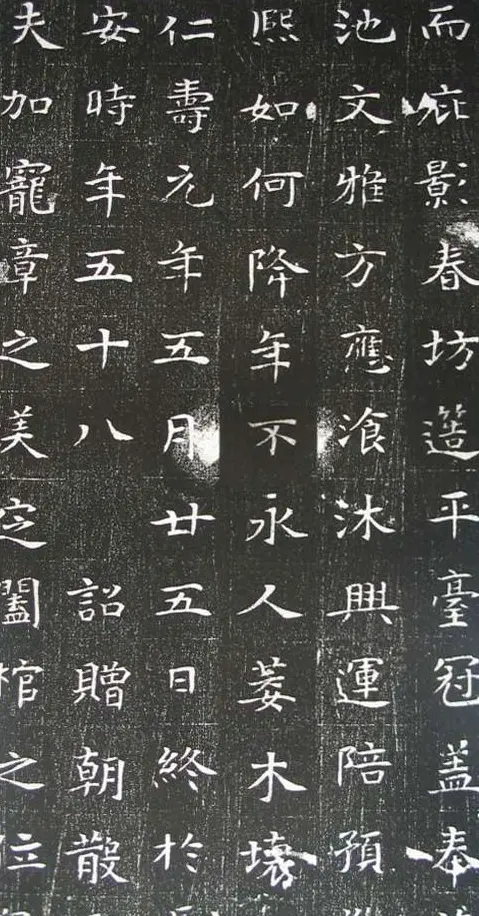 而庇影春坊簉平臺冠盖奉
池文雅方應湌沐興運陪預
熙如何降年不永人萎木壞
仁壽元年五月廿五日終於
安時年五十八 詔贈朝散
夫加寵章之美定闔棺之位